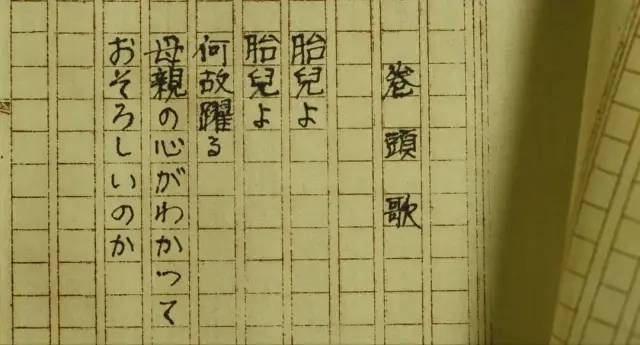 巻頭歌
胎兒よ
胎兒よ
何故躍る
母親の心がわかって
おそろしいのか